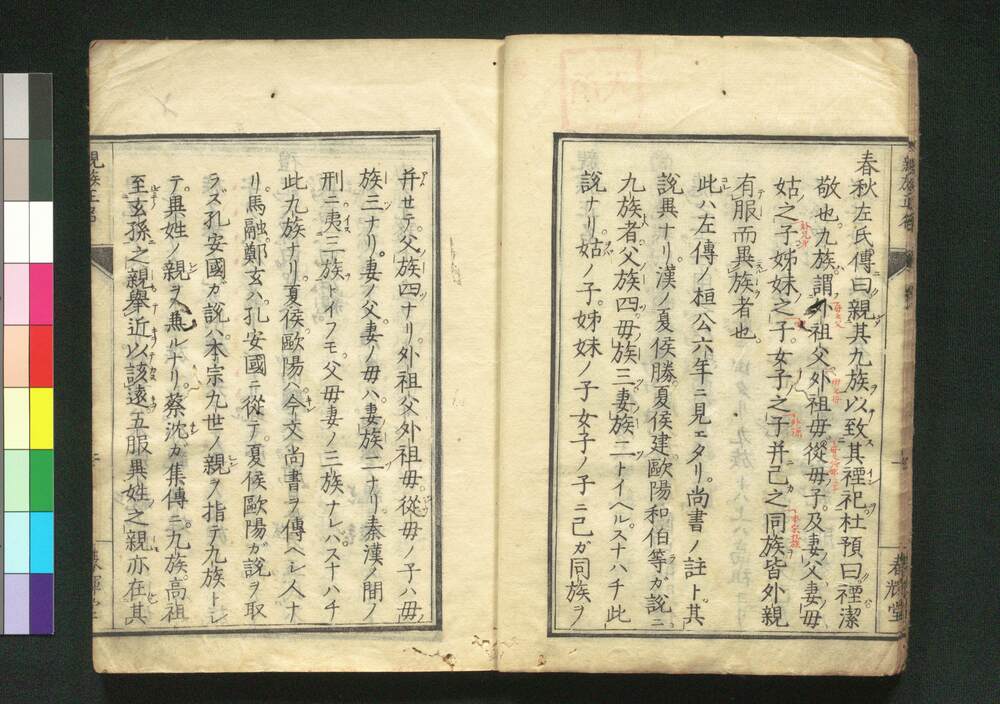 春秋左氏傳曰親其九族以致其禋祀杜預曰禋潔
敬也九族謂外祖父外祖母從母子及妻父妻母
姑之子姊妹之子女子之子并己之同族皆外親
有服而異族者也
此ハ左傳ノ桓公六年ニ見エタリ尚書ノ註ト其
說異ナリ漢ノ夏侯勝夏侯建歐陽和伯等ガ說ニ
九族者父族四毋族三妻族二トイヘルスナハチ此
說ナリ姑ノ子姊妹ノ子女子ノ子ニ己ガ同族ヲ
春輝堂
并セテ父族四ナリ外祖父外祖毋從毋ノ子ハ毋
族三ナリ妻ノ父妻ノ毋ハ妻族二ナリ秦漢ノ間ノ
刑ニ夷三族トイフモ父毋妻ノ三族ナレバスナハチ
此九族ナリ夏侯歐陽ハ今文尚書ヲ傳ヘシ人ナ
リ馬融鄭玄ハ孔安國ニ從テ夏侯歐陽ガ說ヲ取
ラズ孔安國ガ說ハ本宗九世ノ親ヲ指テ九族トシ
テ異姓ノ親ヲ兼ルナリ蔡沈ガ集傳ニ九族高祖
至玄孫之親舉近以該遠五服異姓之親亦在其